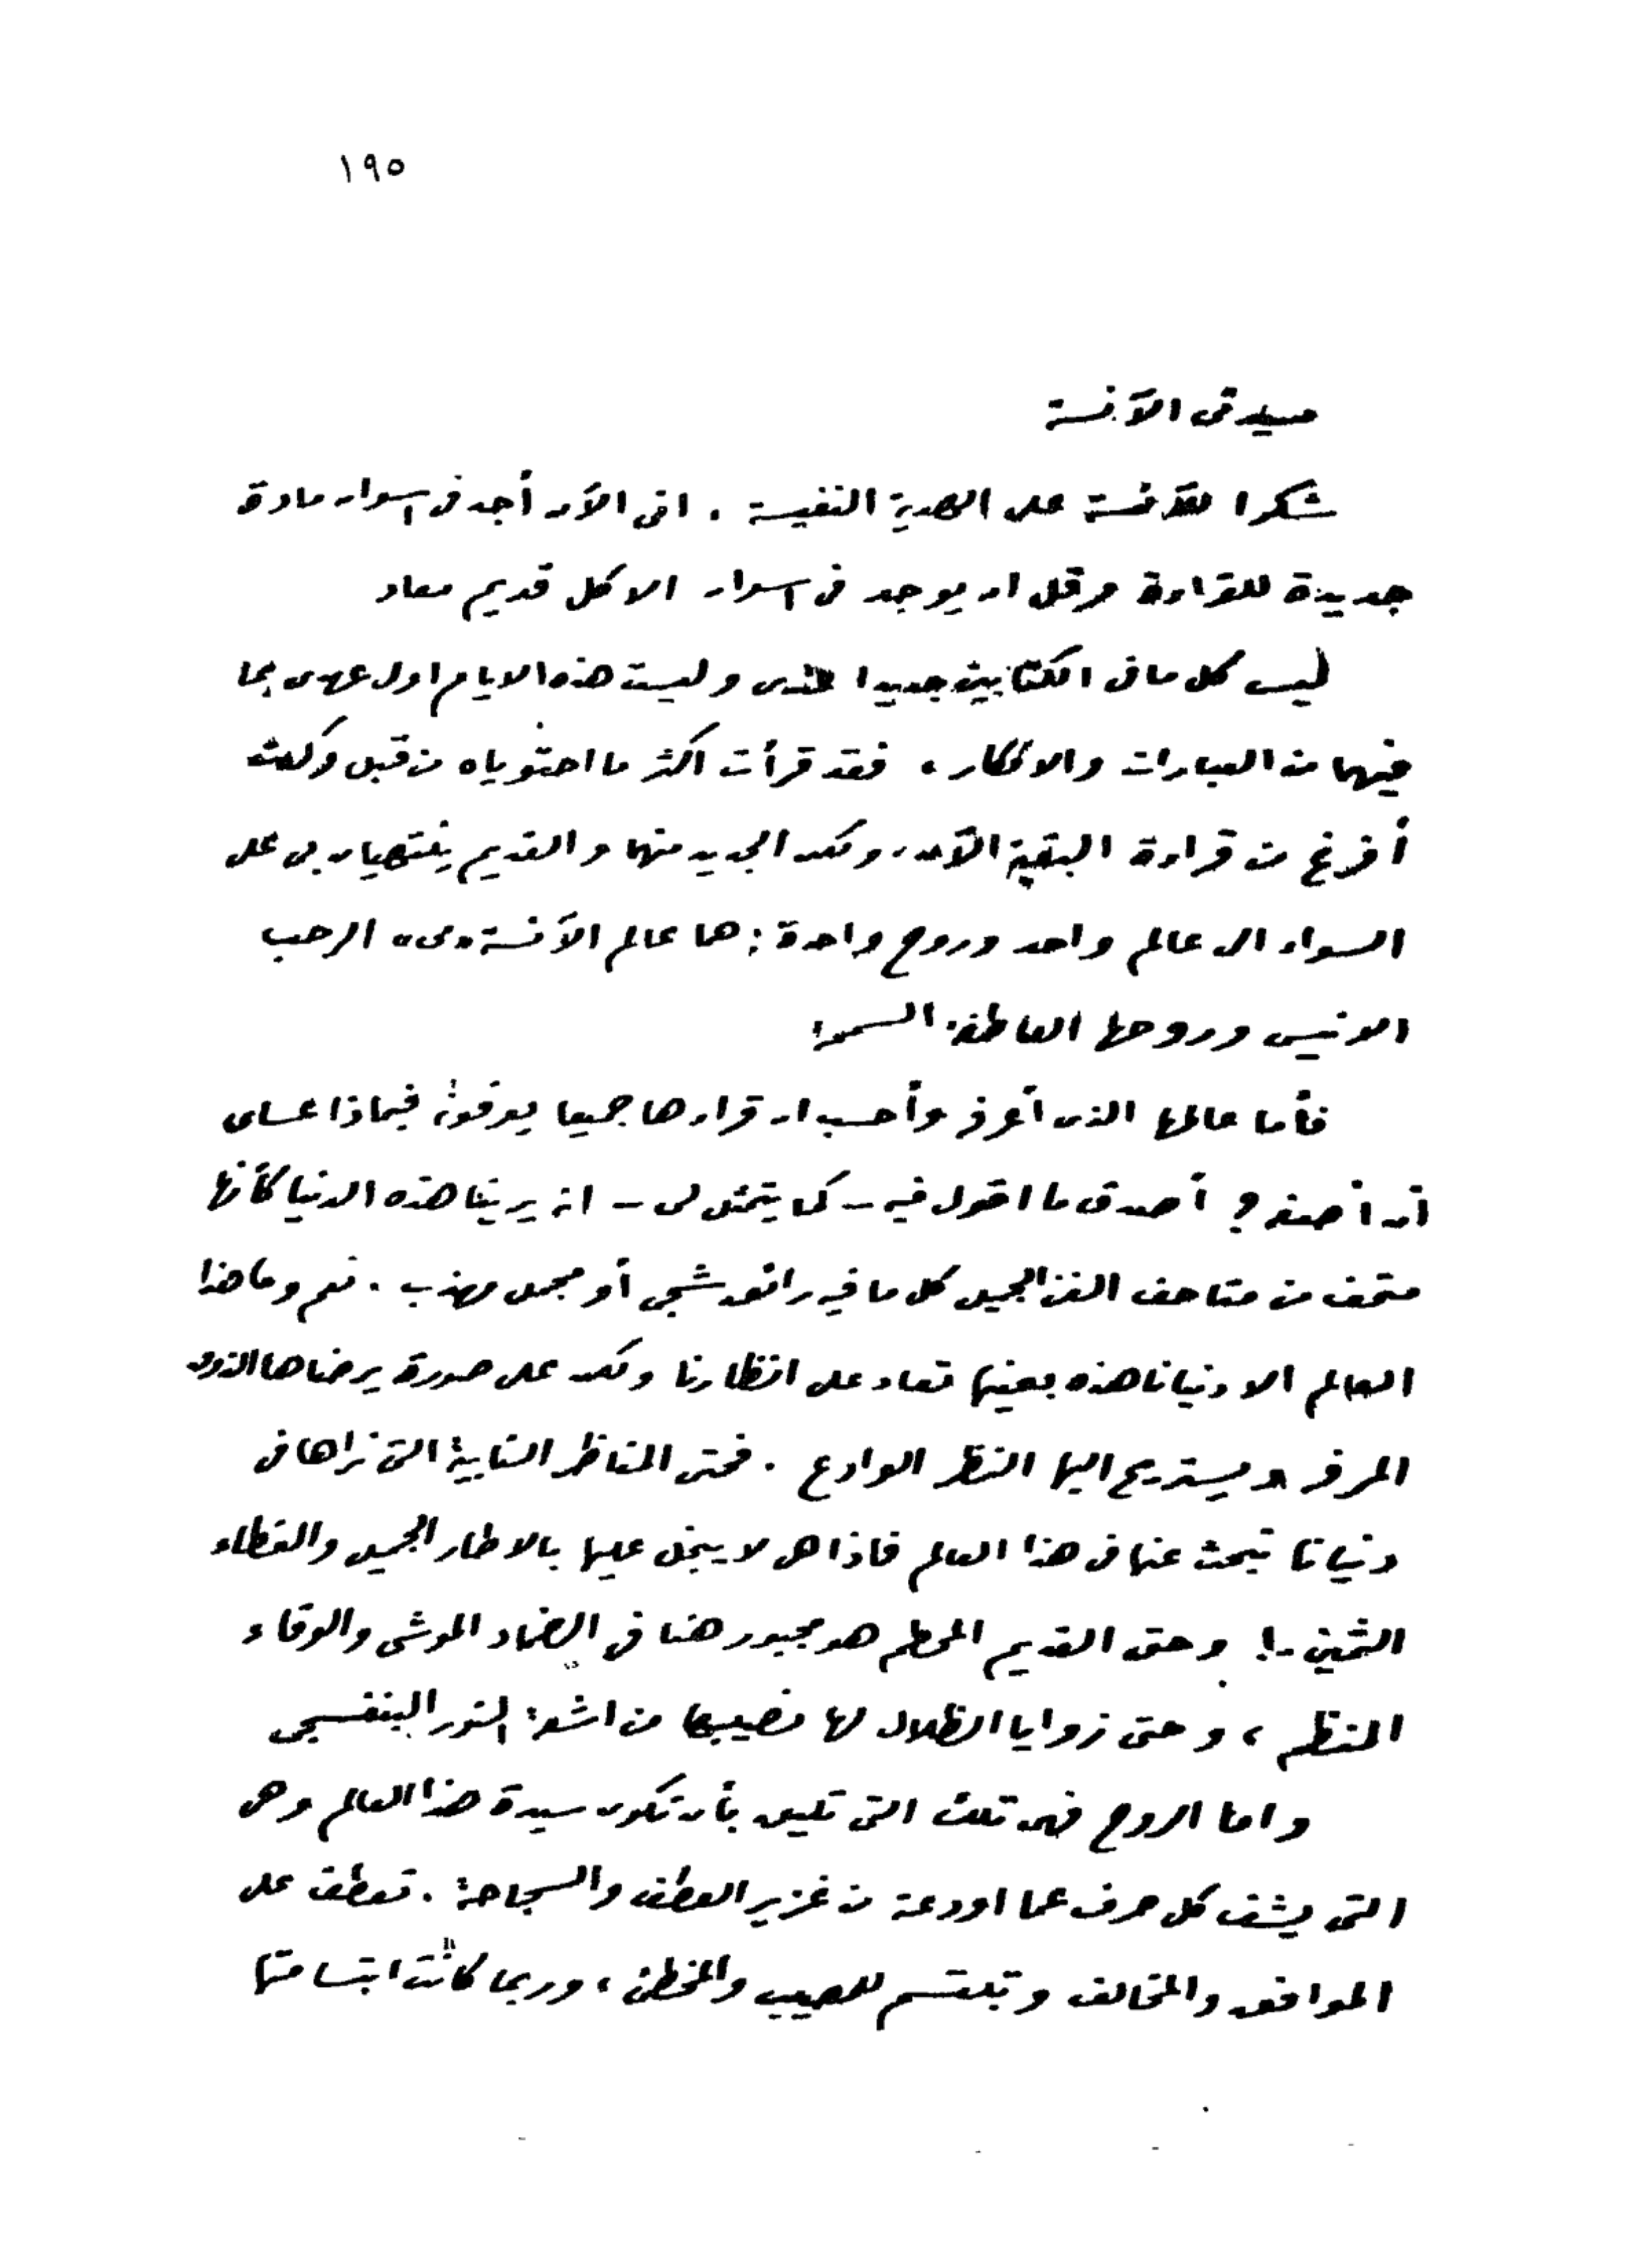 ١٩٥
سيدتى الآنسة
شكرا للآنسة على الهدية النفيسة . انى الآن أجد فى اسوان مادة
جديدة للقراءة وقل ان يوجد فى اسوان الا كل قديم معاد
ليس كل ما فى الكتابين جديدا عندى وليست هذه الايام اول عهدى بما
فيهما من العبارات والافكار ، فقد قرأت اكثر ما احتوياه من قبل وكدت
أفرغ من قراءة البقية الآن ، ولكن الجديد منهما والقديم ينتهيان بى على
السواء الى عالم واحد وروح واحدة : هما عالم الآنسة «مى» الرحب
الانيس وروحها العاطفة السمحة
فأما عالمها الذى أعرفه وأحسب ان قراءها جميعا يعرفونه فبماذا عساى
أن أصفه ؟ أصدق ما اقول فيه ـ كما يتمثل لى ـ انه يرينا هذه الدنيا كأنها
متحف من متاحف الفن الجميل كل ما فيه رائق شجى أو مجمل مهذب . نعم وما هذا
العالم الا دنيانا هذه بعينها تعاد على انظارنا ولكن على صورة يرضاها الذوق
المرفه ويستريح اليها النظر الوادع . فحتى المناظر النابية التى نراها فى
دنيانا تبحث عنها فى هذا العالم فاذا هى لا يبخل عليها بالاطار الجميل والغطاء
الثمين ـ! وحتى القديم المحطم هو مجبور هنا فى الضماد الموشى والوقاء
المنظم ، وحتى زوايا الظلال لها نصيبها من اشعة النور البنفسجى
واما الروح فهى تلك التى تليق بأن تكون سيدة هذا العالم وهى
التى يشف كل حرف عما اودعته من غزير العطف والسجاحة . تعطف على
الموافق والمخالف وتبتسم للمصيب والمخطئ ، وربما كانت ابتسامتها